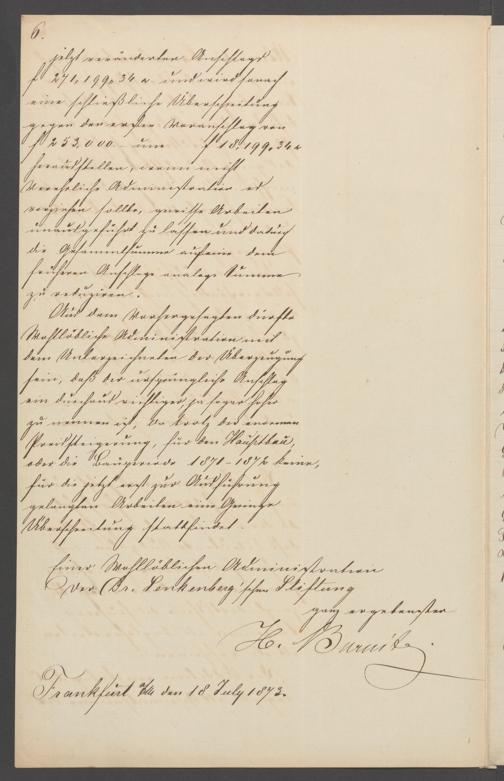 6.
jetzt veränderten Anschlags
f 271,199.34 x und wird sonach
eine schließliche Überschreitung
gegen den ersten Voranschlag von
f 253,000 – um f 18,199.34 x
herausstellen, wenn nicht
Verehrliche Administration es
vorziehen sollte, gewisse Arbeiten
unausgeführt zu lassen und dadurch
die Gesammtsumme auf eine dem
früheren Anschlage analoge Summe
zu reduziren.
Aus dem Vorhergesagten dürfte
Wohllöbliche Administration mit
dem Unterzeichneten der Überzeugung
sein, daß der ursprüngliche Anschlag
ein durchaus richtiger, ja sogar hoher
zu nennen ist, da trotz der enormen
Preissteigerung, für den Hauptbau,
oder die Bauperiode 1871–1872 keine,
für die jetzt erst zur Ausführung
gelangten Arbeiten eine geringe
Überschreitung stattfindet.
Einer Wohllöblichen Administration
Der Dr. Senkenberg'schen Stiftung
ganz ergebenster
H. Burnitz.
Frankfurt a/M den 18 July 1873.